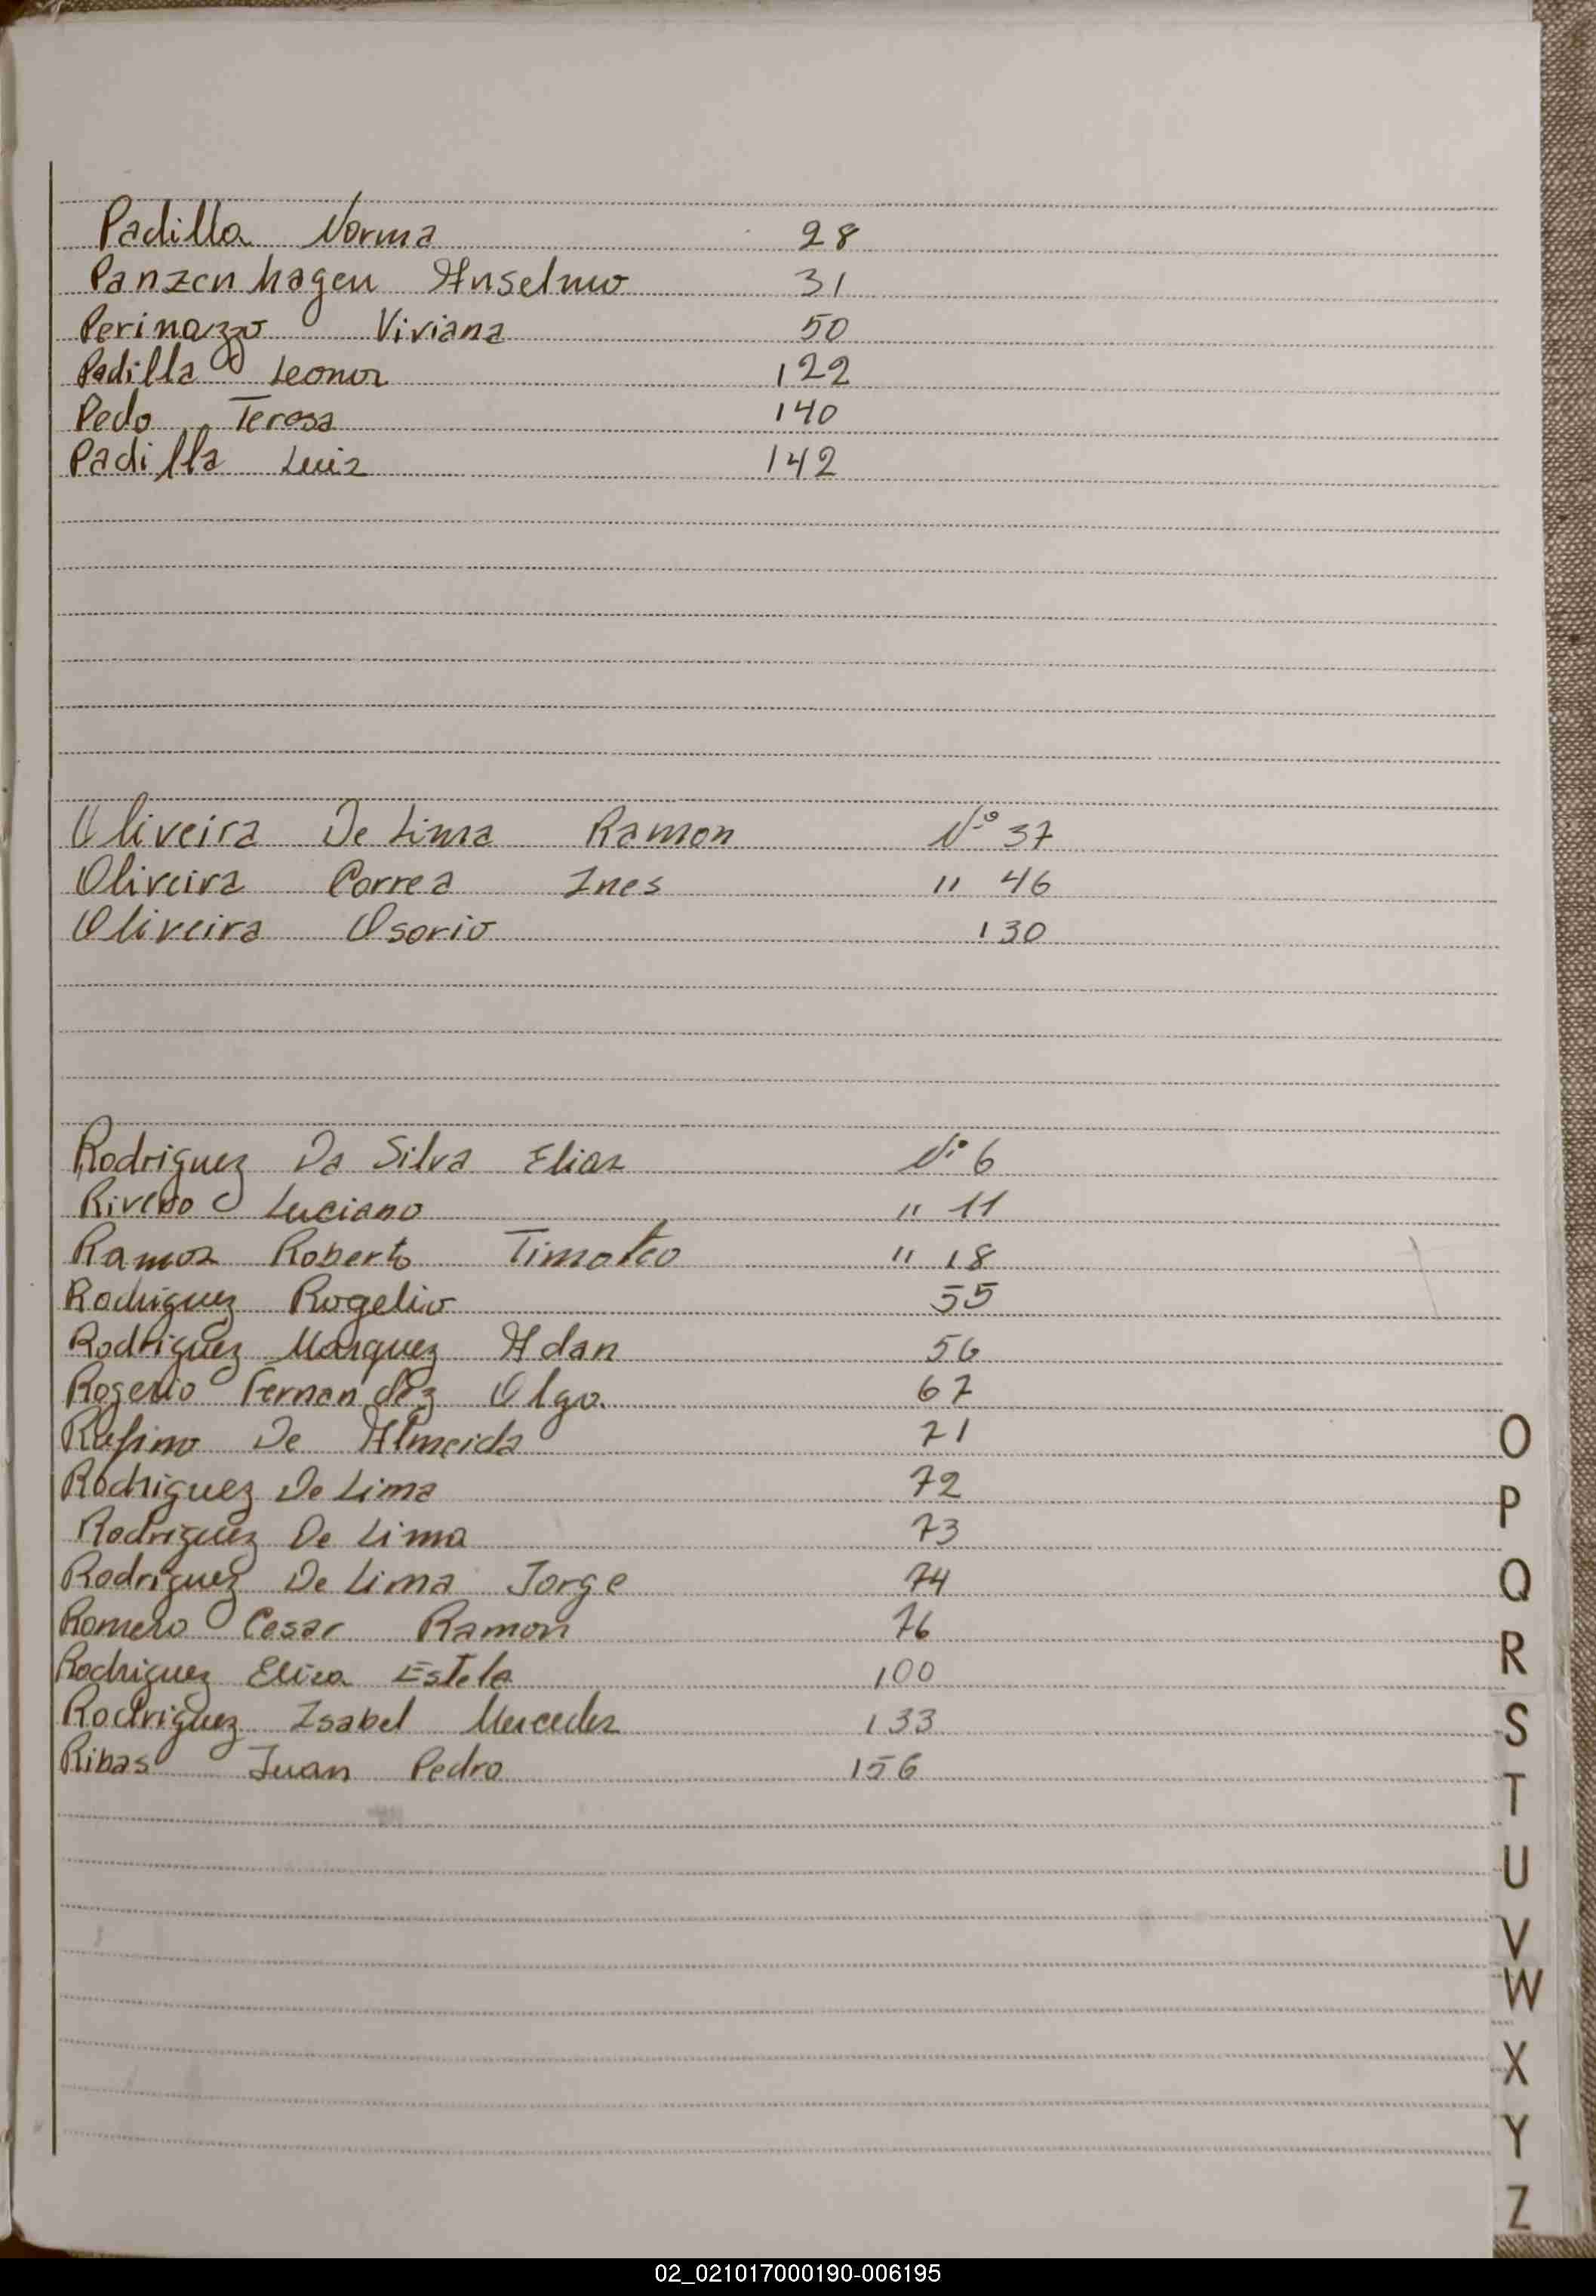 Padilla Norma 28
Panzenhagen Anselmo 31
Perinazzo Viviana 50
Padilla Leonor 122
Pedo Teresa 140
Padilla Luiz 142
Oliveira De Lima Ramon Nº 37
Oliveira Correa Ines " 46
Oliveira Osorio 130
Rodriguez Da Silva Elias Nº 6
Rivero Luciano " 11
Ramos Roberto Timoteo " 18
Rodriguez Rogelio 55
Rodriguez Marquez Adan 56
Rogerio Fernandez Olga 67
Rufino De Almeida 71
Rodriguez De Lima 72
Rodriguez De Lima 73
Rodriguez De Lima Jorge 74
Romero Cesar Ramon 76
Rodriguez Elisa Estela 100
Rodriguez Isabel Mercedes 133
Ribas Juan Pedro 156
O
P
Q
R
S
T
U
V
W
X
Y
Z
02_021017000190-006195